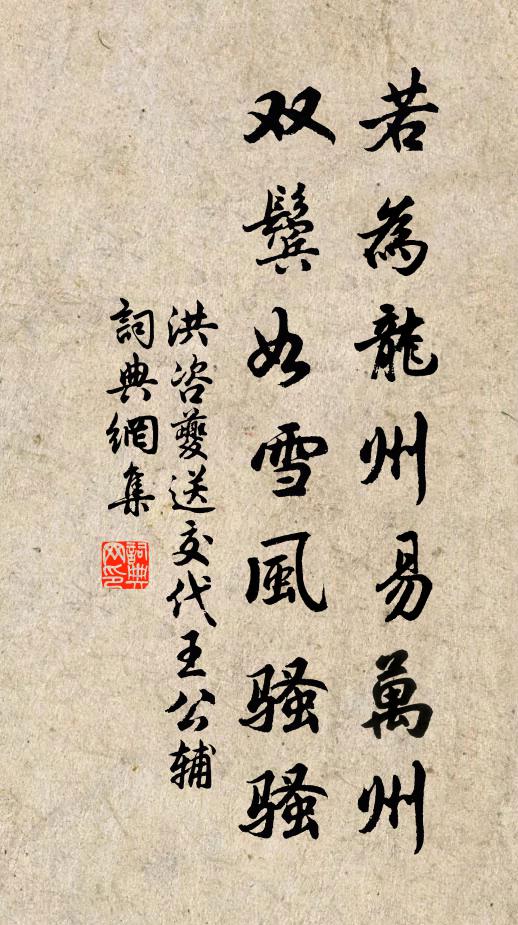 若為龍州易萬州
双鬓如雪風骚骚
洪咨夔送交代王公辅
詞典網集
詞典网印